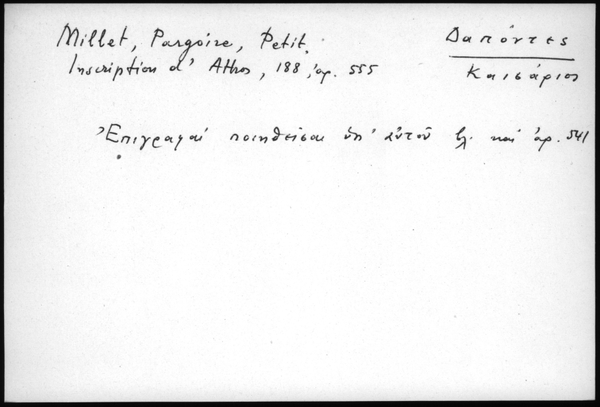 Millet, Pargoire, Petit.
Δαπόντες
Inscription d' Athos, 188, ἀρ. 555
Καισάριος
Ἐπιγραφαί ποιηθεῖσαι ὑπ' αὐτοῦ βλ. καί ἀρ. 541